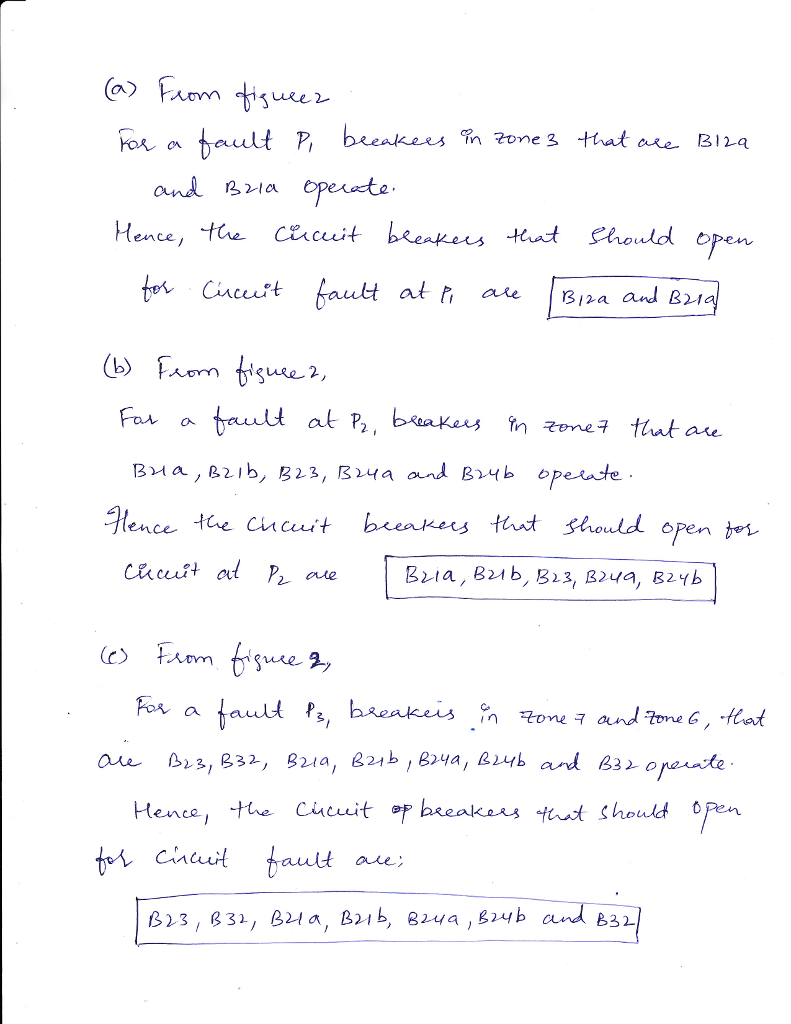 (a) From figure 2
For a fault P1 breakers in zone 3 that are B12a
and B21a operate.
Hence, the Circuit breakers that Should open
for Circuit fault at P1 are B12a and B21a
(b) From figure 2,
For a fault at P2, breakers in zone 7 that are
B21a, B21b, B23, B24a and B24b operate.
Hence the Circuit breakers that should open for
Circuit at P2 are B21a, B21b, B23, B24a, B24b
(c) From figure 2,
For a fault P3, breakers in zone 7 and zone 6, that
are B23, B32, B21a, B21b, B24a, B24b and B32 operate.
Hence, the Circuit breakers that should open
for Circuit fault are;
B23, B32, B21a, B21b, B24a, B24b and B32